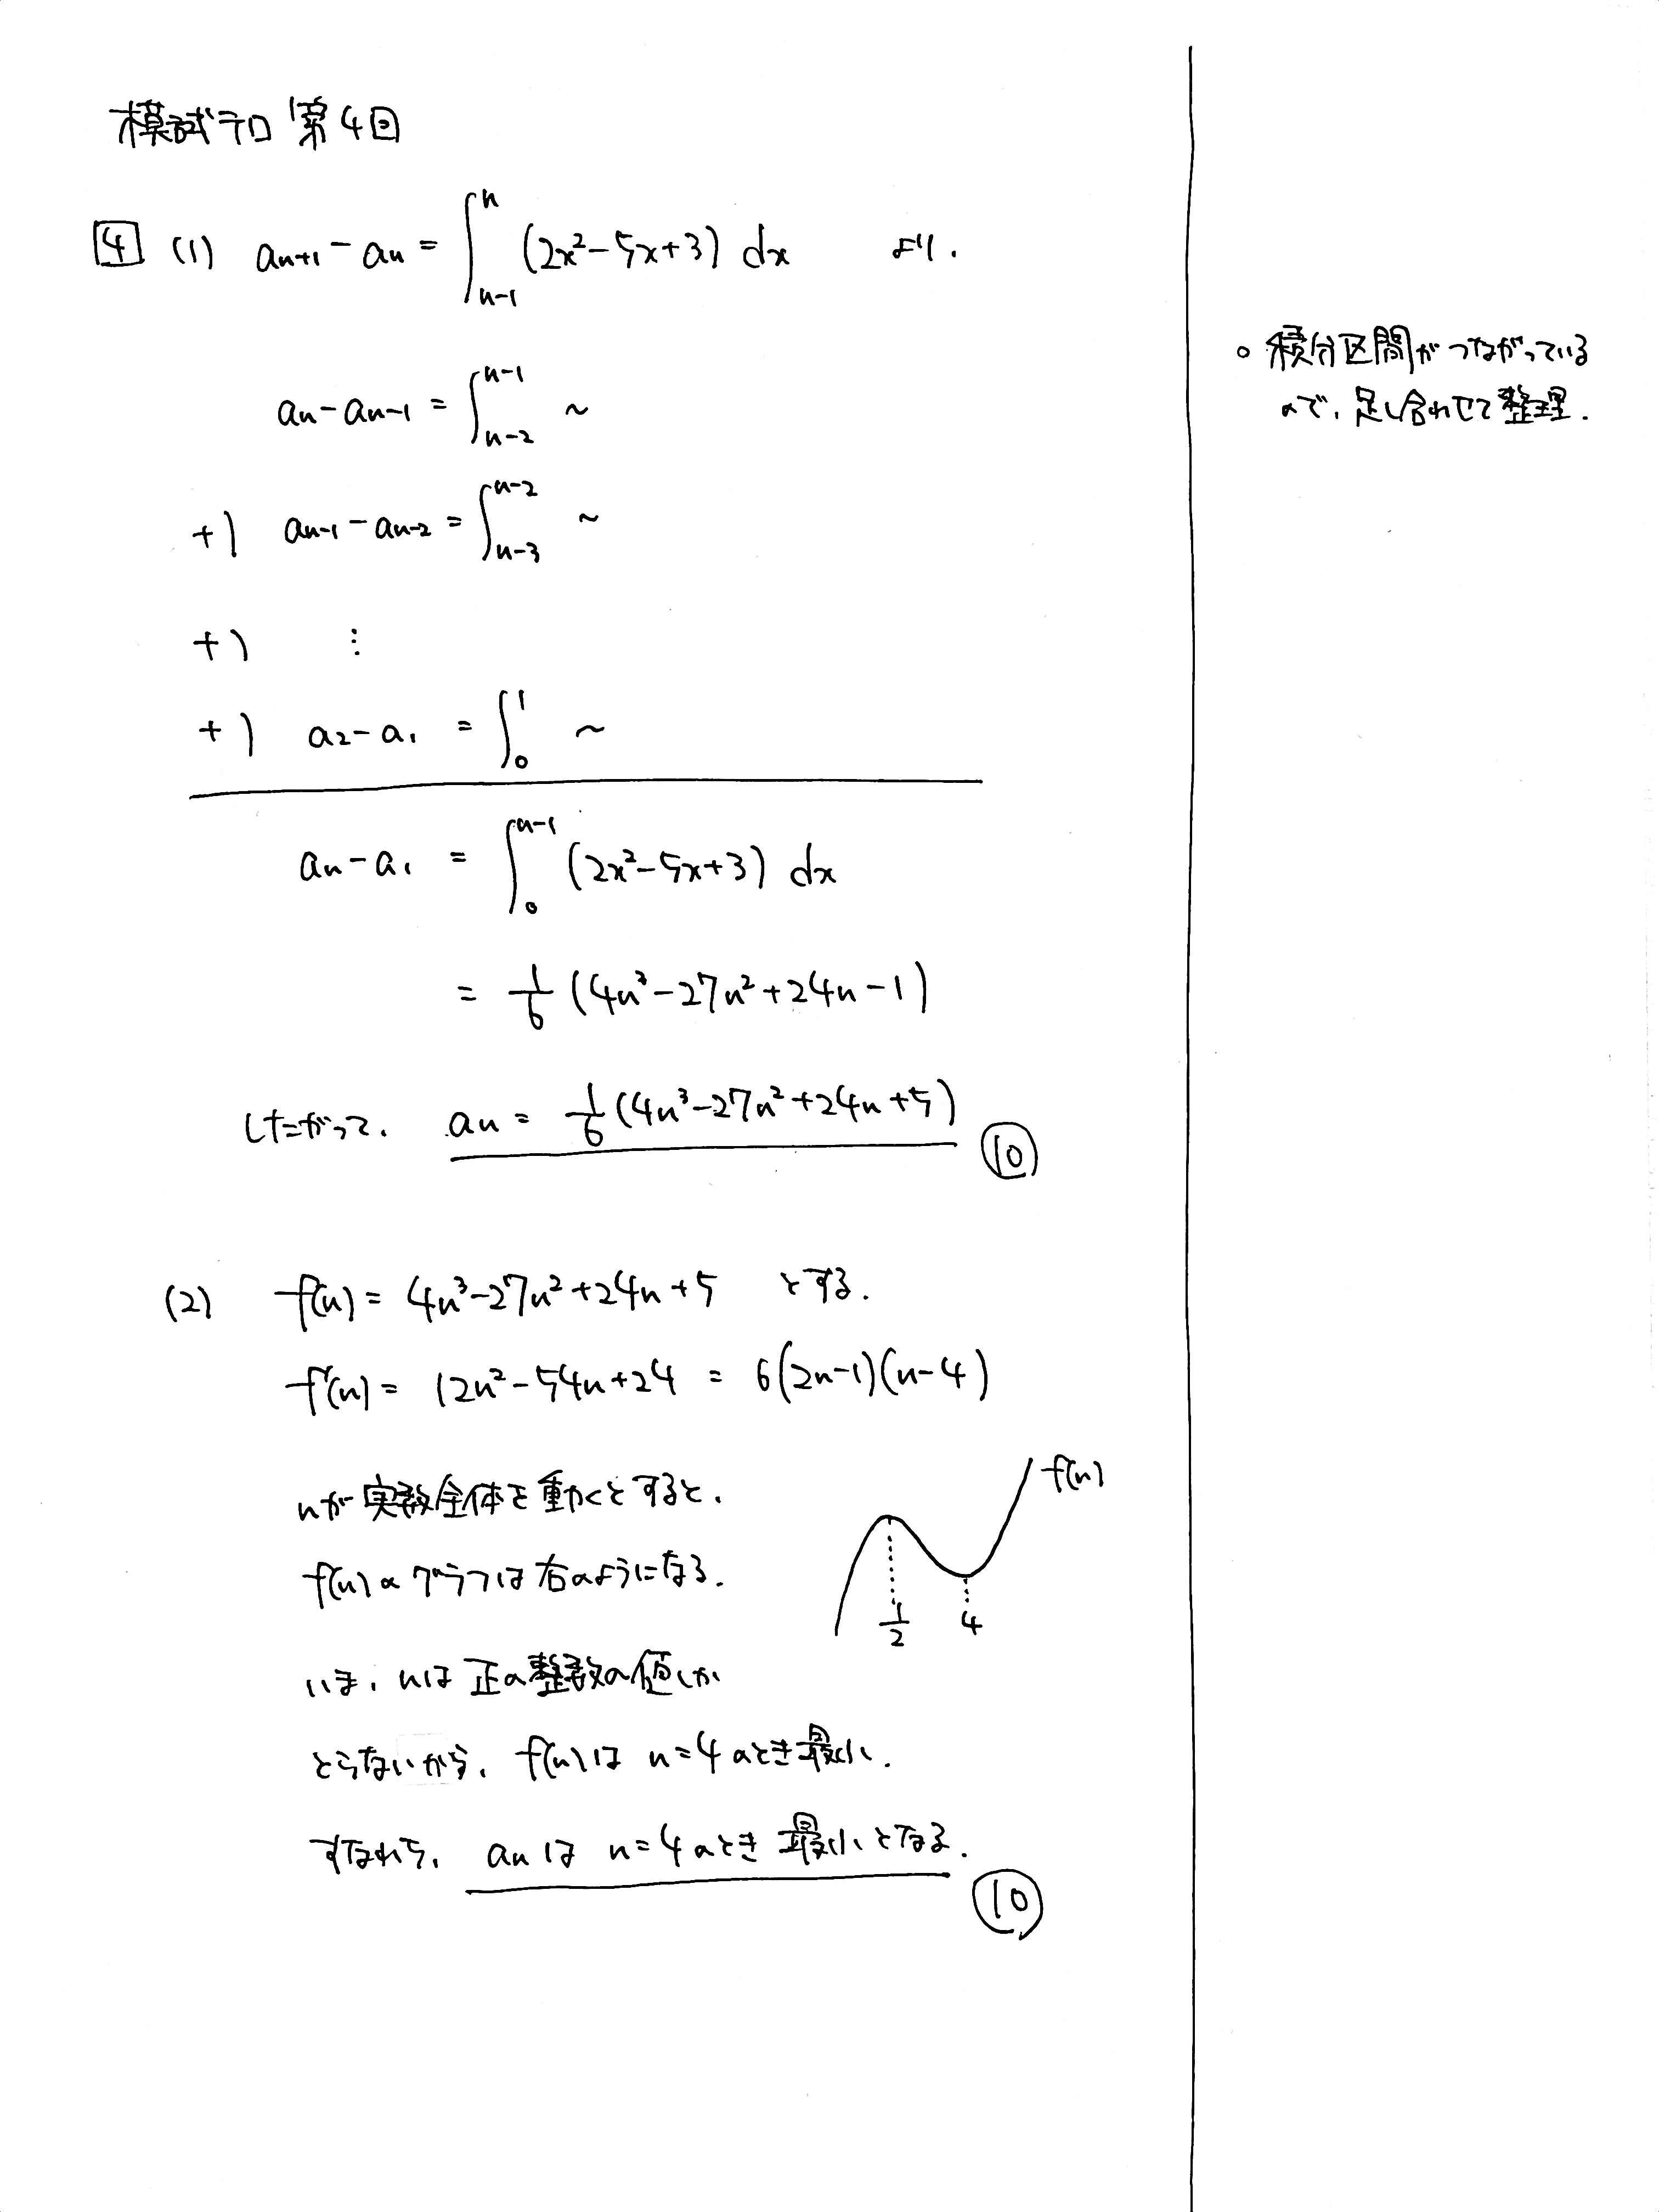 模試テロ 第4回
4 (1) aₙ₊₁ - aₙ = ∫ₙ₋₁ⁿ (2x²-5x+3) dx より.
aₙ - aₙ₋₁ = ∫ₙ₋₂ⁿ⁻¹ ~
+) aₙ₋₁ - aₙ₋₂ = ∫ₙ₋₃ⁿ⁻² ~
+) ⋮
+) a₂ - a₁ = ∫₀¹ ~
aₙ - a₁ = ∫₀ⁿ⁻¹ (2x²-5x+3) dx
= 1/6 (4n³-27n²+24n-1)
したがって. aₙ = 1/6 (4n³-27n²+24n+5) ⑩
(2) f(n) = 4n³-27n²+24n+5 とする.
f'(n) = 12n²-54n+24 = 6(2n-1)(n-4)
nが実数全体を動くとすると,
f(n)のグラフは右のようになる.
いま, nは正の整数の値しか
とらないから, f(n)は n=4のとき最小.
すなわち, aₙは n=4のとき 最小となる. ⑩
f(n)
1/2 4
○ 積分区間がつながっている
ので, 足し合わせて整理.